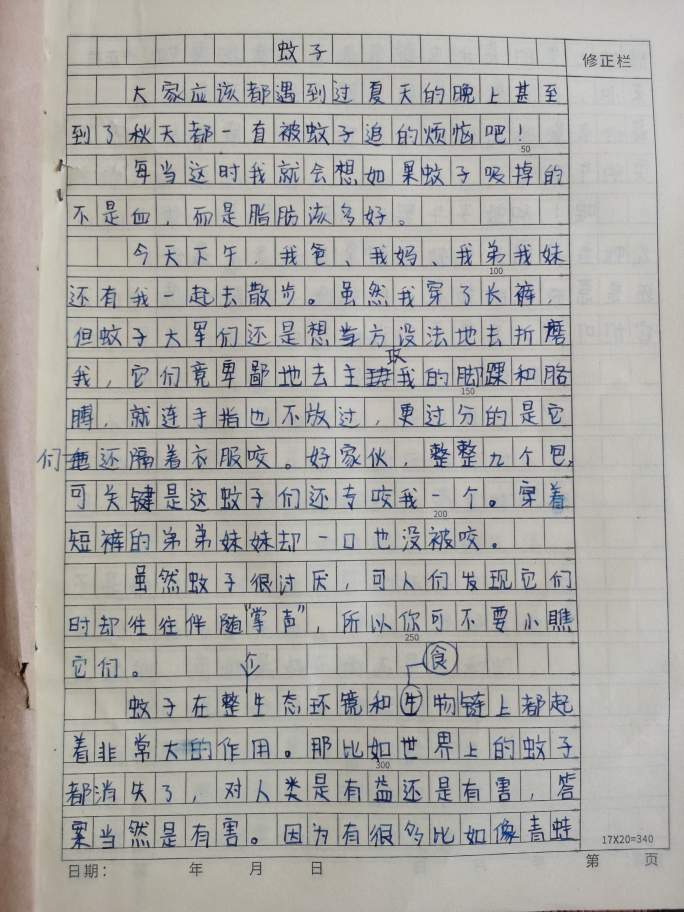 蚊子
修正栏
大家应该都遇到过夏天的晚上甚至
到了秋天都一直被蚊子追的烦恼吧！
50
每当这时我就会想如果蚊子吸掉的
不是血，而是脂肪该多好。
今天下午，我爸、我妈、我弟我妹
100
还有我一起去散步。虽然我穿了长裤，
但蚊子大军们还是想尝方没法地去折磨
攻
我，它们竟卑鄙地去主我的脚踝和胳
150
膊，就连手指也不放过，更过分的是它
们还隔着衣服咬。好家伙，整整九个包，
可关键是这蚊子们还专咬我一个。穿着
200
短裤的弟弟妹妹却一口也没被咬。
虽然蚊子很讨厌，可人们发现它们
时却往往伴随"掌声"，所以你可不要小瞧
250
它们。
个 食
蚊子在整生态环镜和生物链上都起
着非常大的作用。那比如世界上的蚊子
300
都消失了，对人类是有益还是有害，答
案当然是有害。因为有很多比如像青蛙
17X20=340
日期： 年 月 日 第 页